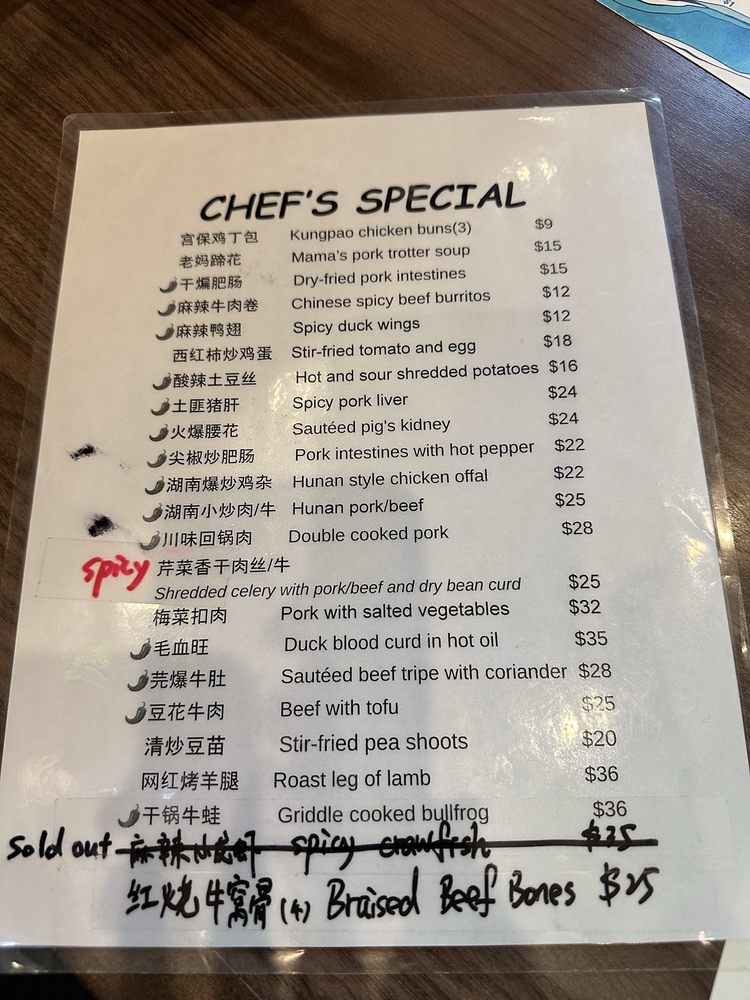 CHEF'S SPECIAL
宫保鸡丁包 Kungpao chicken buns(3) $9
老妈蹄花 Mama's pork trotter soup $15
干煸肥肠 Dry-fried pork intestines $15
麻辣牛肉卷 Chinese spicy beef burritos $12
麻辣鸭翅 Spicy duck wings $12
西红柿炒鸡蛋 Stir-fried tomato and egg $18
酸辣土豆丝 Hot and sour shredded potatoes $16
土匪猪肝 Spicy pork liver $24
火爆腰花 Sautéed pig's kidney $24
尖椒炒肥肠 Pork intestines with hot pepper $22
湖南爆炒鸡杂 Hunan style chicken offal $22
湖南小炒肉/牛 Hunan pork/beef $25
川味回锅肉 Double cooked pork $28
spicy 芹菜香干肉丝/牛
Shredded celery with pork/beef and dry bean curd $25
梅菜扣肉 Pork with salted vegetables $32
毛血旺 Duck blood curd in hot oil $35
芫爆牛肚 Sautéed beef tripe with coriander $28
豆花牛肉 Beef with tofu $25
清炒豆苗 Stir-fried pea shoots $20
网红烤羊腿 Roast leg of lamb $36
干锅牛蛙 Griddle cooked bullfrog $36
Sold out 麻辣小龙虾 spicy crawfish $35
红烧牛窝骨(4) Braised Beef Bones $25